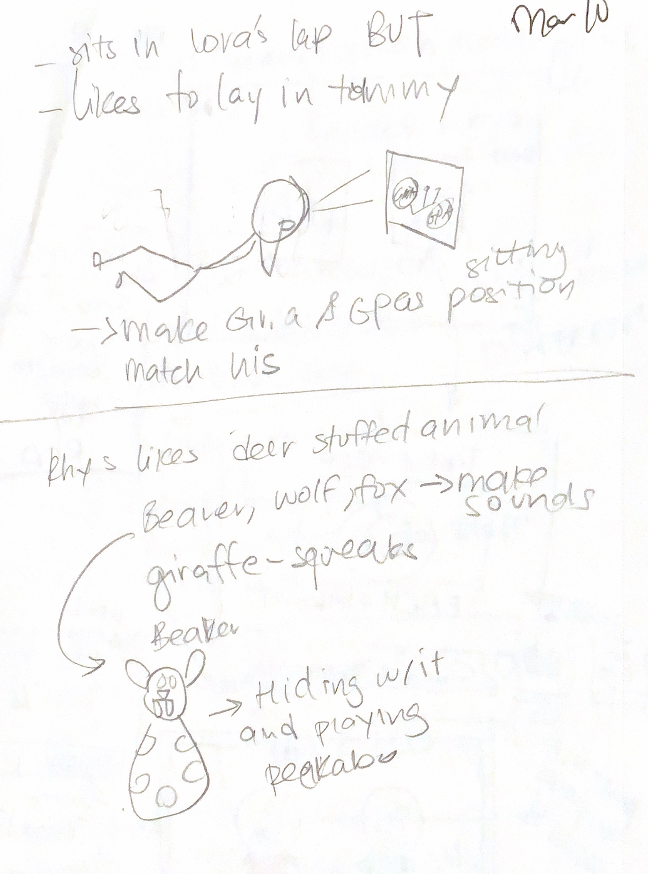 Mar 10
- sits in Lora's lap BUT
- likes to lay in tummy
GMA
GPA
sitting
-> make Gma & GPas position
match his
Rhys likes deer stuffed animal
Beaver, wolf, fox -> make
sounds
giraffe - squeaks
Beaver
-> Hiding w/ it
and playing
peekaboo